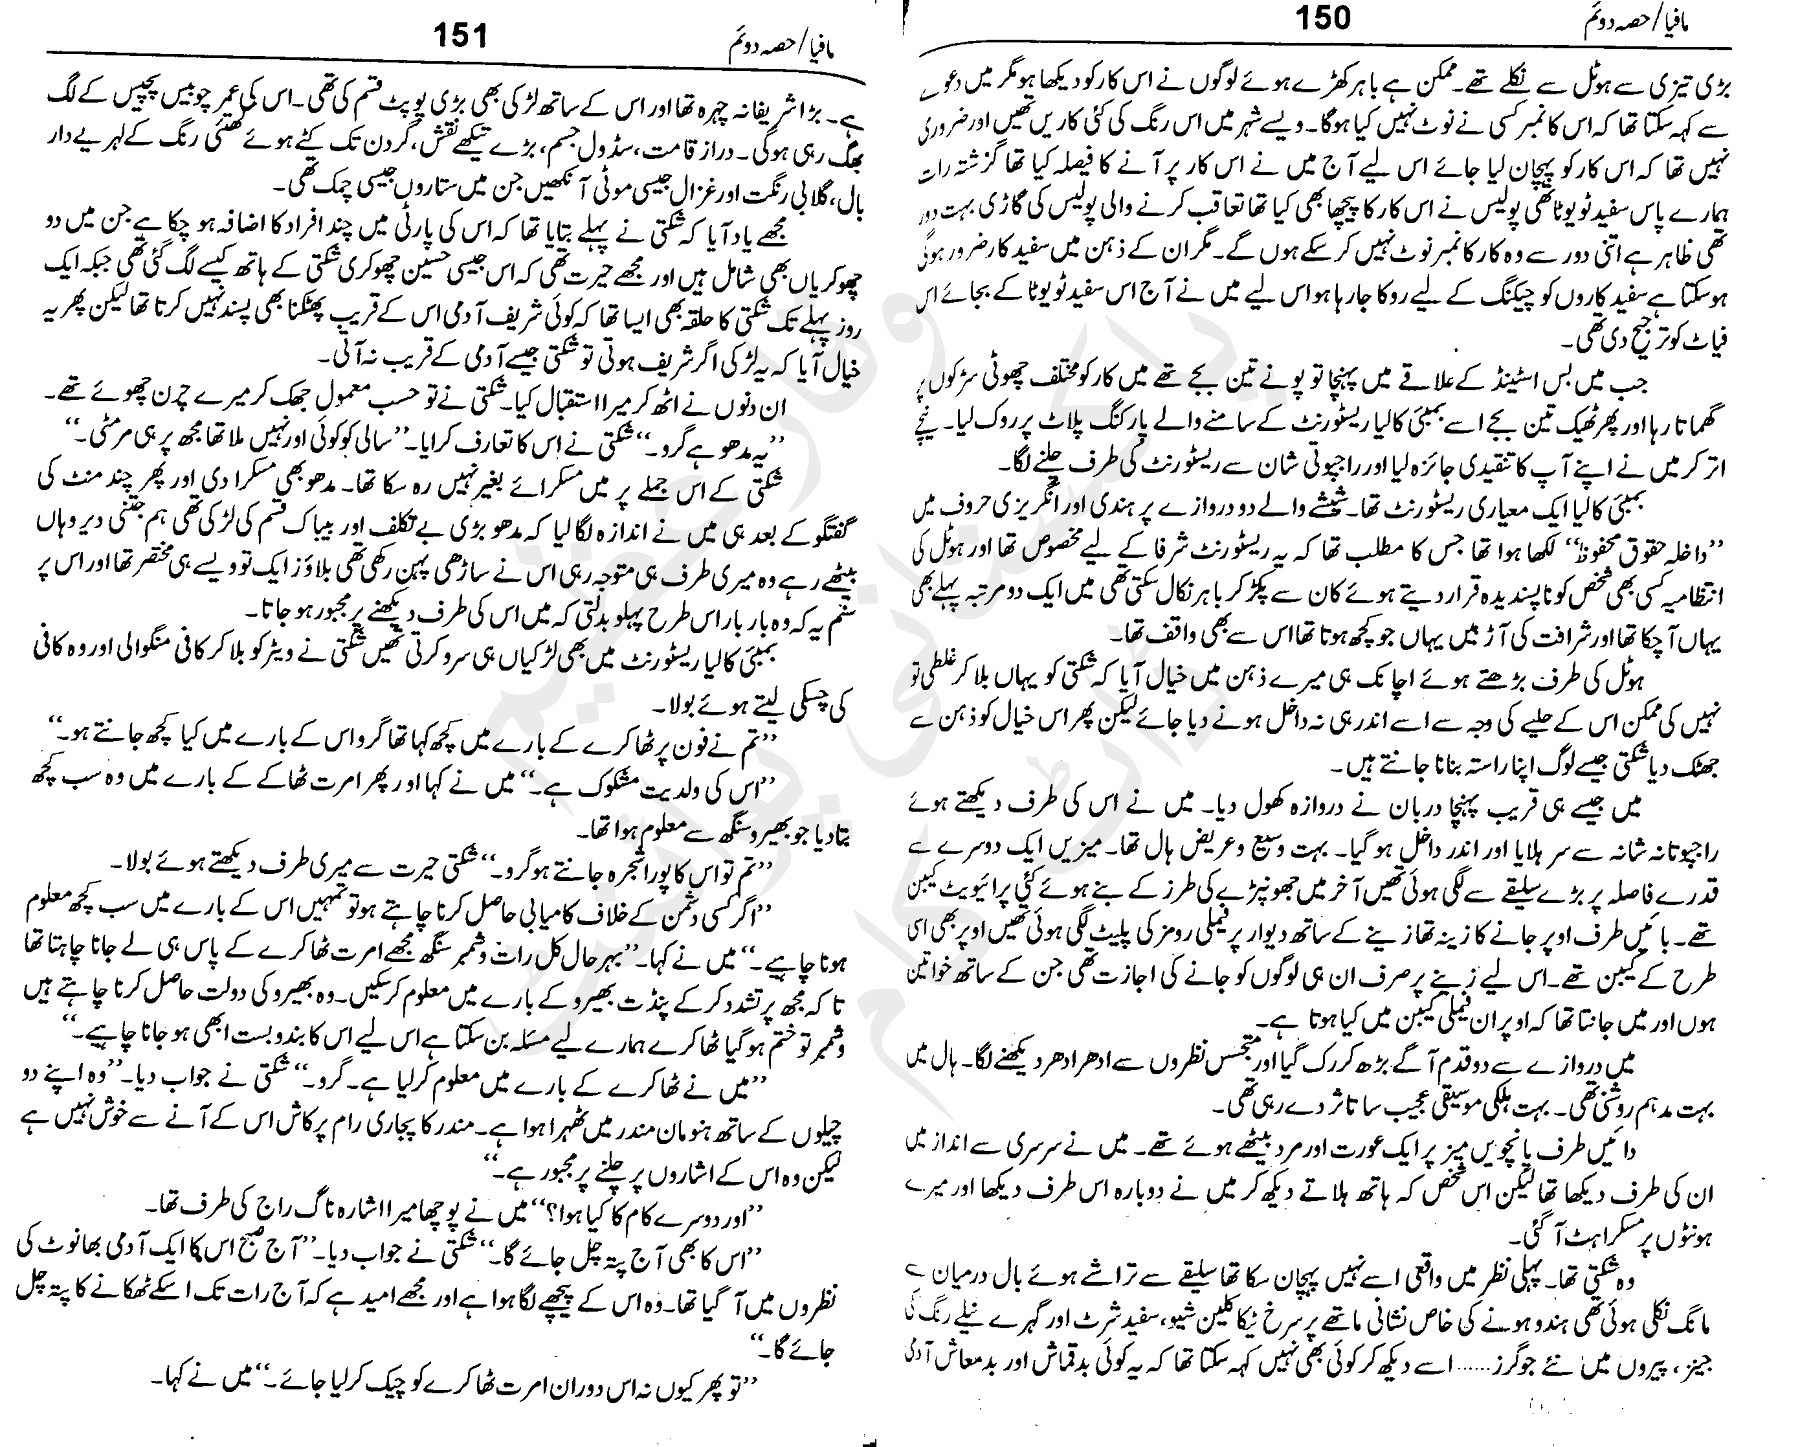 مافیا/حصہ دوئم
150
بڑی تیزی سے ہوٹل سے نکلے تھے۔ ممکن ہے باہر کھڑے ہوئے لوگوں نے اس کار کو دیکھا ہو مگر میں دعوے
سے کہہ سکتا تھا کہ اس کا نمبر کسی نے نوٹ نہیں کیا ہوگا۔ ویسے شہر میں اس رنگ کی کئی کاریں تھیں اور ضروری
نہیں تھا کہ اس کار کو پہچان لیا جائے اس لیے آج میں نے اس کار پر آنے کا فیصلہ کیا تھا گزشتہ رات
ہمارے پاس سفید ٹویوٹا تھی پولیس نے اس کار کا پیچھا بھی کیا تھا تعاقب کرنے والی پولیس کی گاڑی بہت دور
تھی ظاہر ہے اتنی دور سے وہ کار کا نمبر نوٹ نہیں کر سکے ہوں گے۔ مگر ان کے ذہن میں سفید کار ضرور ہوگی
ہوسکتا ہے سفید کاروں کو چیکنگ کے لیے روکا جا رہا ہو اس لیے میں نے آج اس سفید ٹویوٹا کے بجائے اس
فیاٹ کو ترجیح دی تھی۔
جب میں بس اسٹینڈ کے علاقے میں پہنچا تو پونے تین بجے تھے میں کار کو مختلف چھوٹی سڑکوں پر
گھماتا رہا اور پھر ٹھیک تین بجے اسے بمبئی کالیا ریسٹورنٹ کے سامنے والے پارکنگ پلاٹ پر روک لیا۔ نیچے
اتر کر میں نے اپنے آپ کا تنقیدی جائزہ لیا اور راجپوتی شان سے ریسٹورنٹ کی طرف چلنے لگا۔
بمبئی کالیا ایک معیاری ریسٹورنٹ تھا۔ شیشے والے دو دروازے پر ہندی اور انگریزی حروف میں
’’داخلہ حقوق محفوظ‘‘ لکھا ہوا تھا جس کا مطلب تھا کہ یہ ریسٹورنٹ شرفا کے لیے مخصوص تھا اور ہوٹل کی
انتظامیہ کسی بھی شخص کو ناپسندیدہ قرار دیتے ہوئے کان سے پکڑ کر باہر نکال سکتی تھی میں ایک دو مرتبہ پہلے بھی
یہاں آچکا تھا اور شرافت کی آڑ میں یہاں جو کچھ ہوتا تھا اس سے بھی واقف تھا۔
ہوٹل کی طرف بڑھتے ہوئے اچانک ہی میرے ذہن میں خیال آیا کہ شکتی کو یہاں بلا کر غلطی تو
نہیں کی ممکن اس کے حلیے کی وجہ سے اسے اندر ہی نہ داخل ہونے دیا جائے لیکن پھر اس خیال کو ذہن سے
جھٹک دیا شکتی جیسے لوگ اپنا راستہ بنانا جانتے ہیں۔
میں جیسے ہی قریب پہنچا دربان نے دروازہ کھول دیا۔ میں نے اس کی طرف دیکھتے ہوئے
راجپوتانہ شانہ سے سر ہلایا اور اندر داخل ہوگیا۔ بہت وسیع و عریض ہال تھا۔ میزیں ایک دوسرے سے
قدرے فاصلہ پر بڑے سلیقے سے لگی ہوئی تھیں آخر میں جھونپڑے کی طرز کے بنے ہوئے کئی پرائیویٹ کیبن
تھے۔ بائیں طرف اوپر جانے کا زینہ تھا زینے کے ساتھ دیوار پر فیملی رومز کی پلیٹ لگی ہوئی تھیں اوپر بھی اسی
طرح کے کیبن تھے۔ اس لیے زینے پر صرف ان ہی لوگوں کو جانے کی اجازت تھی جن کے ساتھ خواتین
ہوں اور میں جانتا تھا کہ اوپر ان فیملی کیبن میں کیا ہوتا ہے۔
میں دروازے سے دو قدم آگے بڑھ کر رک گیا اور متجسس نظروں سے ادھر ادھر دیکھنے لگا۔ ہال میں
بہت مدہم روشنی تھی۔ بہت ہلکی موسیقی عجیب سا تاثر دے رہی تھی۔
دائیں طرف پانچویں میز پر ایک عورت اور مرد بیٹھے ہوئے تھے۔ میں نے سرسری سے انداز میں
ان کی طرف دیکھا تھا لیکن اس شخص کہ ہاتھ ہلاتے دیکھ کر میں نے دوبارہ اس طرف دیکھا اور میرے
ہونٹوں پر مسکراہٹ آگئی۔
وہ شکتی تھا۔ پہلی نظر میں واقعی اسے نہیں پہچان سکا تھا سلیقے سے تراشے ہوئے بال درمیان سے
مانگ نکلی ہوئی تھی ہندو ہونے کی خاص نشانی ماتھے پر سرخ ٹیکا کلین شیو، سفید شرٹ اور گہرے نیلے رنگ کی
جینز، پیروں میں نئے جوگرز...... اسے دیکھ کر کوئی بھی نہیں کہہ سکتا تھا کہ یہ کوئی بدقماش اور بدمعاش آدمی
مافیا/حصہ دوئم
151
ہے۔ بڑا شریفانہ چہرہ تھا اور اس کے ساتھ لڑکی بھی بڑی پوپٹ قسم کی تھی۔ اس کی عمر چوبیس پچیس کے لگ
بھگ رہی ہوگی۔ دراز قامت، سڈول جسم، بڑے تیکھے نقش، گردن تک کٹے ہوئے کتھئی رنگ کے لہریے دار
بال، گلابی رنگت اور غزال جیسی موٹی آنکھیں جن میں ستاروں جیسی چمک تھی۔
مجھے یاد آیا کہ شکتی نے پہلے بتایا تھا کہ اس کی پارٹی میں چند افراد کا اضافہ ہو چکا ہے جن میں دو
چھوکریاں بھی شامل ہیں اور مجھے حیرت تھی کہ اس جیسی حسین چھوکری شکتی کے ہاتھ کیسے لگ گئی تھی جبکہ ایک
روز پہلے تک شکتی کا حلقہ بھی ایسا تھا کہ کوئی شریف آدمی اس کے قریب پھٹکنا بھی پسند نہیں کرتا تھا لیکن پھر یہ
خیال آیا کہ یہ لڑکی اگر شریف ہوتی تو شکتی جیسے آدمی کے قریب نہ آتی۔
ان دنوں نے اٹھ کر میرا استقبال کیا۔ شکتی نے تو حسب معمول جھک کر میرے چرن چھوئے تھے۔
’’یہ مدھو ہے گرو۔‘‘ شکتی نے اس کا تعارف کرایا۔ ’’سالی کو کوئی اور نہیں ملا تھا مجھ پر ہی مرمٹی۔‘‘
شکتی کے اس جملے پر میں مسکرائے بغیر نہیں رہ سکا تھا۔ مدھو بھی مسکرا دی اور پھر چند منٹ کی
گفتگو کے بعد ہی میں نے اندازہ لگا لیا کہ مدھو بڑی بے تکلف اور بیباک قسم کی لڑکی تھی ہم جتنی دیر وہاں
بیٹھے رہے وہ میری طرف ہی متوجہ رہی اس نے ساڑھی پہن رکھی تھی بلاؤز ایک تو ویسے ہی مختصر تھا اور اس پر
ستم یہ کہ وہ بار بار اس طرح پہلو بدلتی کہ میں اس کی طرف دیکھنے پر مجبور ہو جاتا۔
بمبئی کالیا ریسٹورنٹ میں بھی لڑکیاں ہی سرو کرتی تھیں شکتی نے ویٹر کو بلا کر کافی منگوالی اور وہ کافی
کی چسکی لیتے ہوئے بولا۔
’’تم نے فون پر ٹھاکرے کے بارے میں کچھ کہا تھا گرو اس کے بارے میں کیا کچھ جانتے ہو۔‘‘
’’اس کی ولدیت مشکوک ہے۔‘‘ میں نے کہا اور پھر امرت ٹھاکے کے بارے میں وہ سب کچھ
بتا دیا جو بھیرو سنگھ سے معلوم ہوا تھا۔
’’تم تو اس کا پورا شجرہ جانتے ہو گرو۔‘‘ شکتی حیرت سے میری طرف دیکھتے ہوئے بولا۔
’’اگر کسی دشمن کے خلاف کامیابی حاصل کرنا چاہتے ہو تو تمہیں اس کے بارے میں سب کچھ معلوم
ہونا چاہیے۔‘‘ میں نے کہا۔ ’’بہرحال کل رات وشمبر سنگھ مجھے امرت ٹھاکرے کے پاس ہی لے جانا چاہتا تھا
تا کہ مجھ پر تشدد کر کے پنڈت بھیرو کے بارے میں معلوم کر سکیں۔ وہ بھیرو کی دولت حاصل کرنا چاہتے ہیں
وشمبر تو ختم ہو گیا ٹھاکرے ہمارے لیے مسئلہ بن سکتا ہے اس لیے اس کا بندوبست ابھی ہو جانا چاہیے۔‘‘
’’میں نے ٹھاکرے کے بارے میں معلوم کر لیا ہے۔ گرو۔‘‘ شکتی نے جواب دیا۔ ’’وہ اپنے دو
چیلوں کے ساتھ ہنومان مندر میں ٹھہرا ہوا ہے۔ مندر کا پجاری رام پرکاش اس کے آنے سے خوش نہیں ہے
لیکن وہ اس کے اشاروں پر چلنے پر مجبور ہے۔‘‘
’’اور دوسرے کام کا کیا ہوا؟‘‘ میں نے پوچھا میرا اشارہ ناگ راج کی طرف تھا۔
’’اس کا بھی آج پتہ چل جائے گا۔‘‘ شکتی نے جواب دیا۔ ’’آج صبح اس کا ایک آدمی بھانوٹ کی
نظروں میں آگیا تھا۔ وہ اس کے پیچھے لگا ہوا ہے اور مجھے امید ہے کہ آج رات تک اسکے ٹھکانے کا پتہ چل
جائے گا۔‘‘
’’تو پھر کیوں نہ اس دوران امرت ٹھاکرے کو چیک کر لیا جائے۔‘‘ میں نے کہا۔